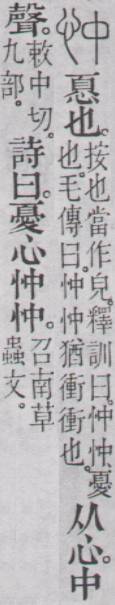 忡 惪也。按也當作皃。釋訓曰。忡忡、憂也。毛傳曰。忡忡猶衝衝也。从心。中
聲。敕中切。九部。詩曰。憂心忡忡。召南草蟲文。